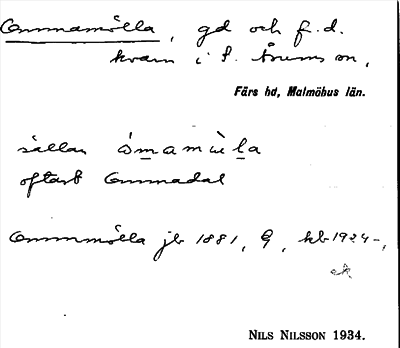 Ommamölla, gd och f.d.
kvarn i S. Åsums sn,
Färs hd, Malmöhus län.
sällan ómamø̀la
oftast Ommadal
Ommmölla jb 1881, G, kb 1924-,
ek
NILS NILSSON 1934.